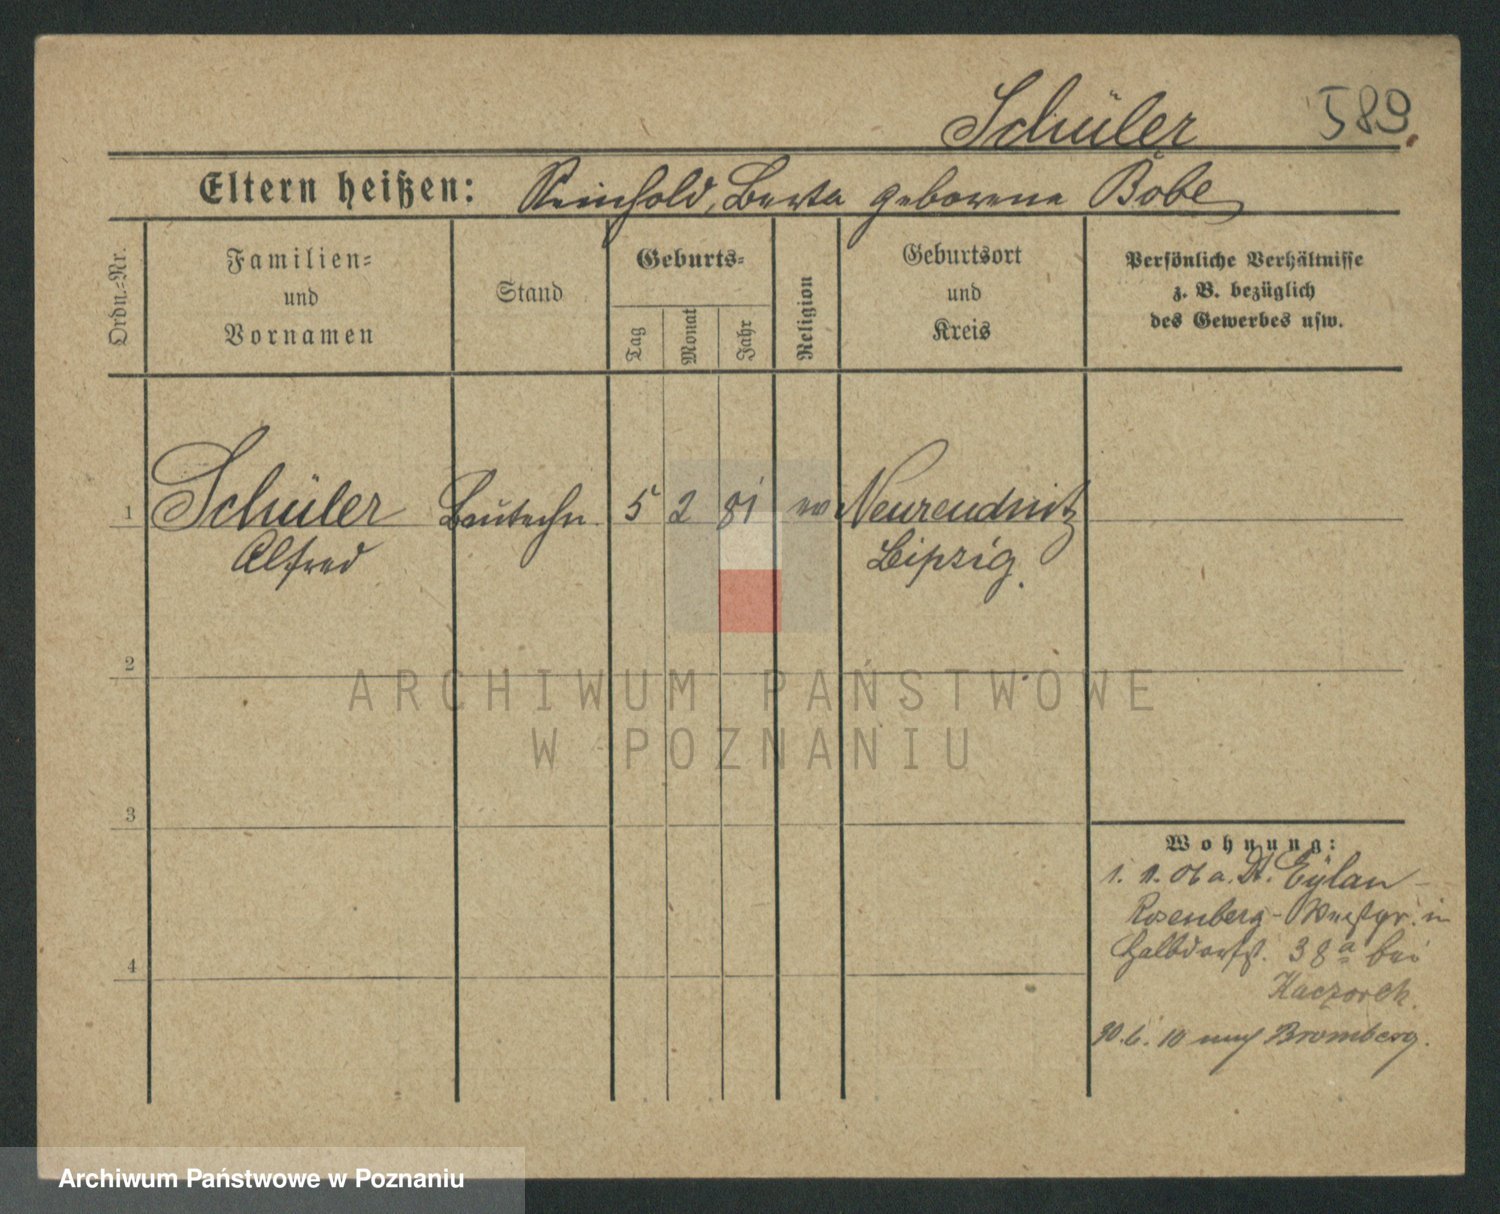 Schüler 589
Eltern heißen: Reinhold, Berta geborene Bobe
Ordn.-Nr.
Familien-
und
Vornamen
Stand
Geburts-
Tag
Monat
Jahr
Religion
Geburtsort
und
Kreis
Persönliche Verhältnisse
z. B. bezüglich
des Gewerbes usw.
1 Schüler Bautechn. 5 2 81 ev Neureudnitz
Alfred Leipzig.
2
3
4
Wohnung:
1. 1. 06 a. Dt. Eylan -
Rosenberg - Westpr. in
Halbdorfst. 38a bei
Kaczorek.
30.6.10 nach Bromberg.
ARCHIWUM PAŃSTWOWE
W POZNANIU
Archiwum Państwowe w Poznaniu